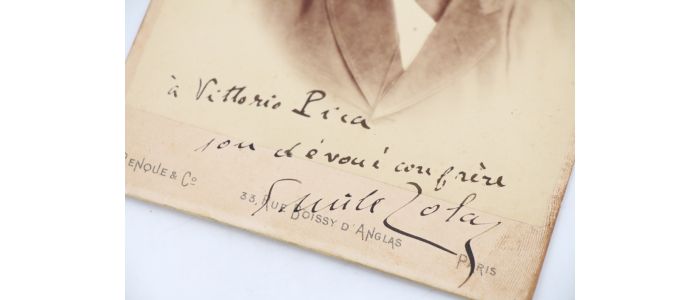 à Vittorio Pica
son dévoué confrère
Emile Zola
BENQUE & Cº
33, RUE BOISSY D'ANGLAS
PARIS